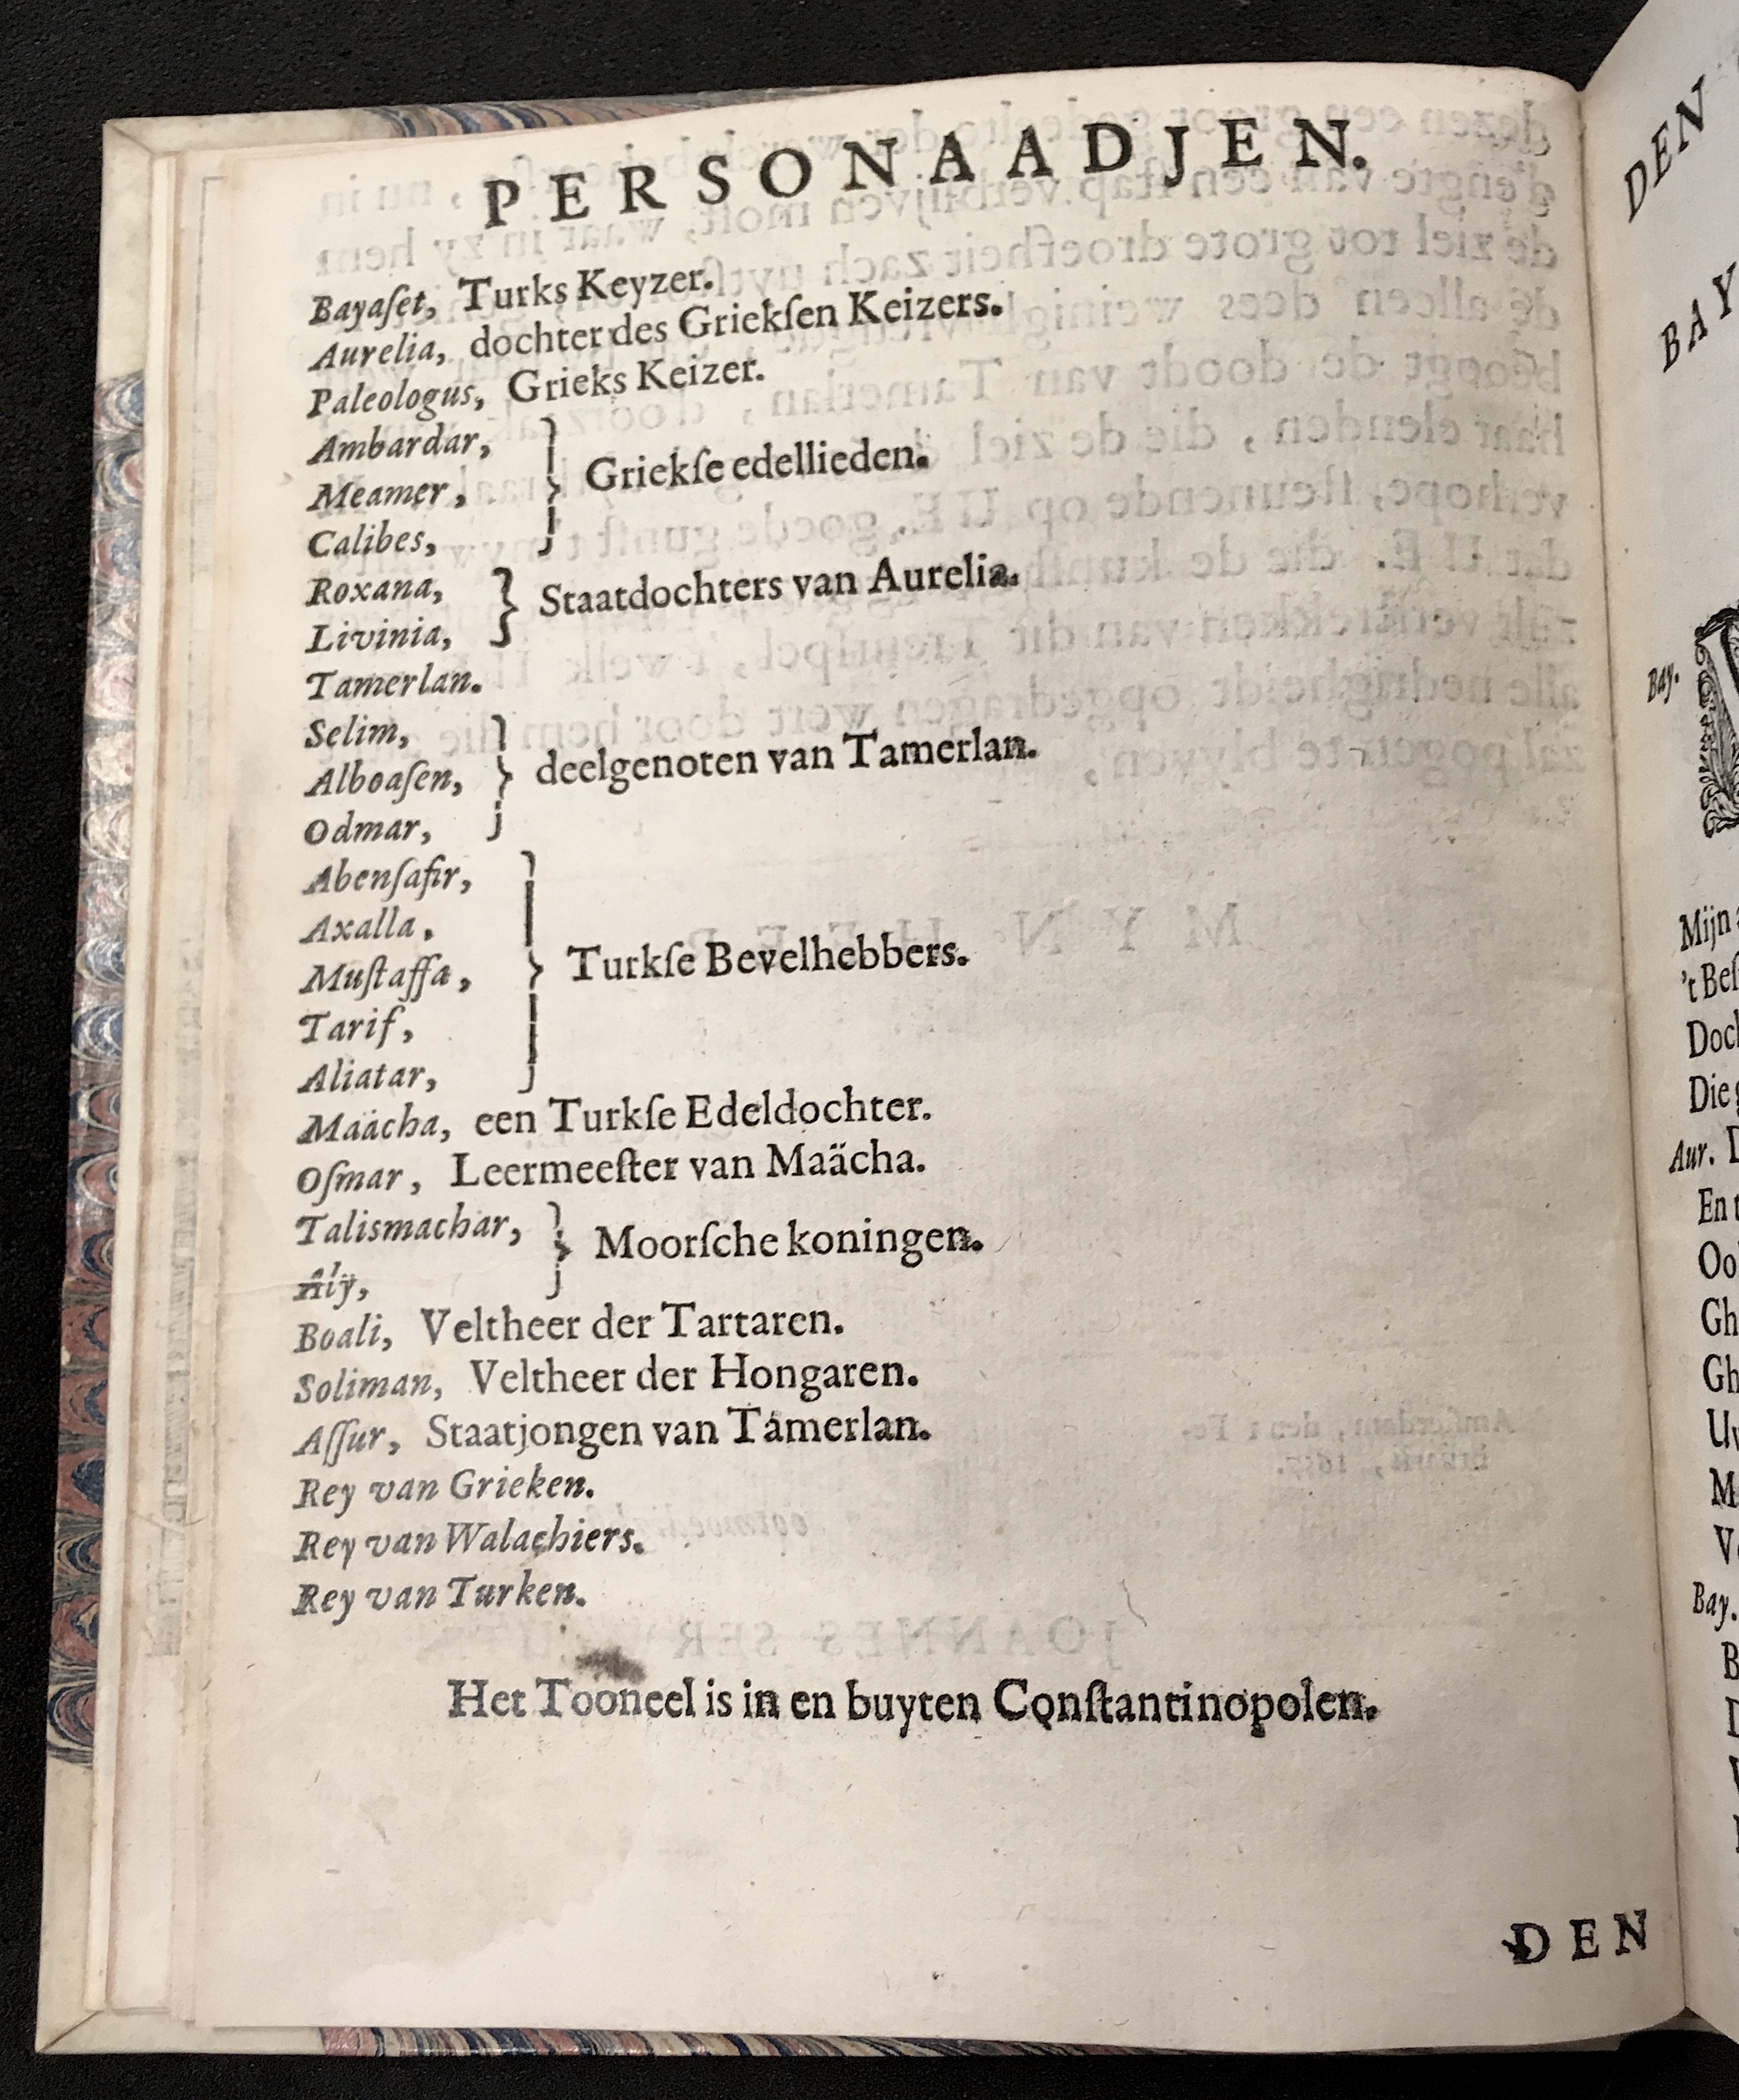 PERSONAADJEN.
Bayaſet, Turks Keyzer.
Aurelia, dochter des Griekſen Keizers.
Paleologus, Grieks Keizer.
Ambardar,
Meamer, } Griekſe edellieden.
Calibes,
Roxana, } Staatdochters van Aurelia.
Livinia,
Tamerlan.
Selim,
Alboaſen, } deelgenoten van Tamerlan.
Odmar,
Abenſafir,
Axalla,
Muſtaffa, } Turkſe Bevelhebbers.
Tarif,
Aliatar,
Maächa, een Turkſe Edeldochter.
Oſmar, Leermeeſter van Maächa.
Talismachar, } Moorſche koningen.
Aly,
Boali, Veltheer der Tartaren.
Soliman, Veltheer der Hongaren.
Aſſur, Staatjongen van Tamerlan.
Rey van Grieken.
Rey van Walachiers.
Rey van Turken.
Het Tooneel is in en buyten Conſtantinopolen.
DEN
DEN
BAY
Bay.
Mijn
't Beſ
Doch
Die
Aur.
En
Oo
Gh
Gh
Bay.